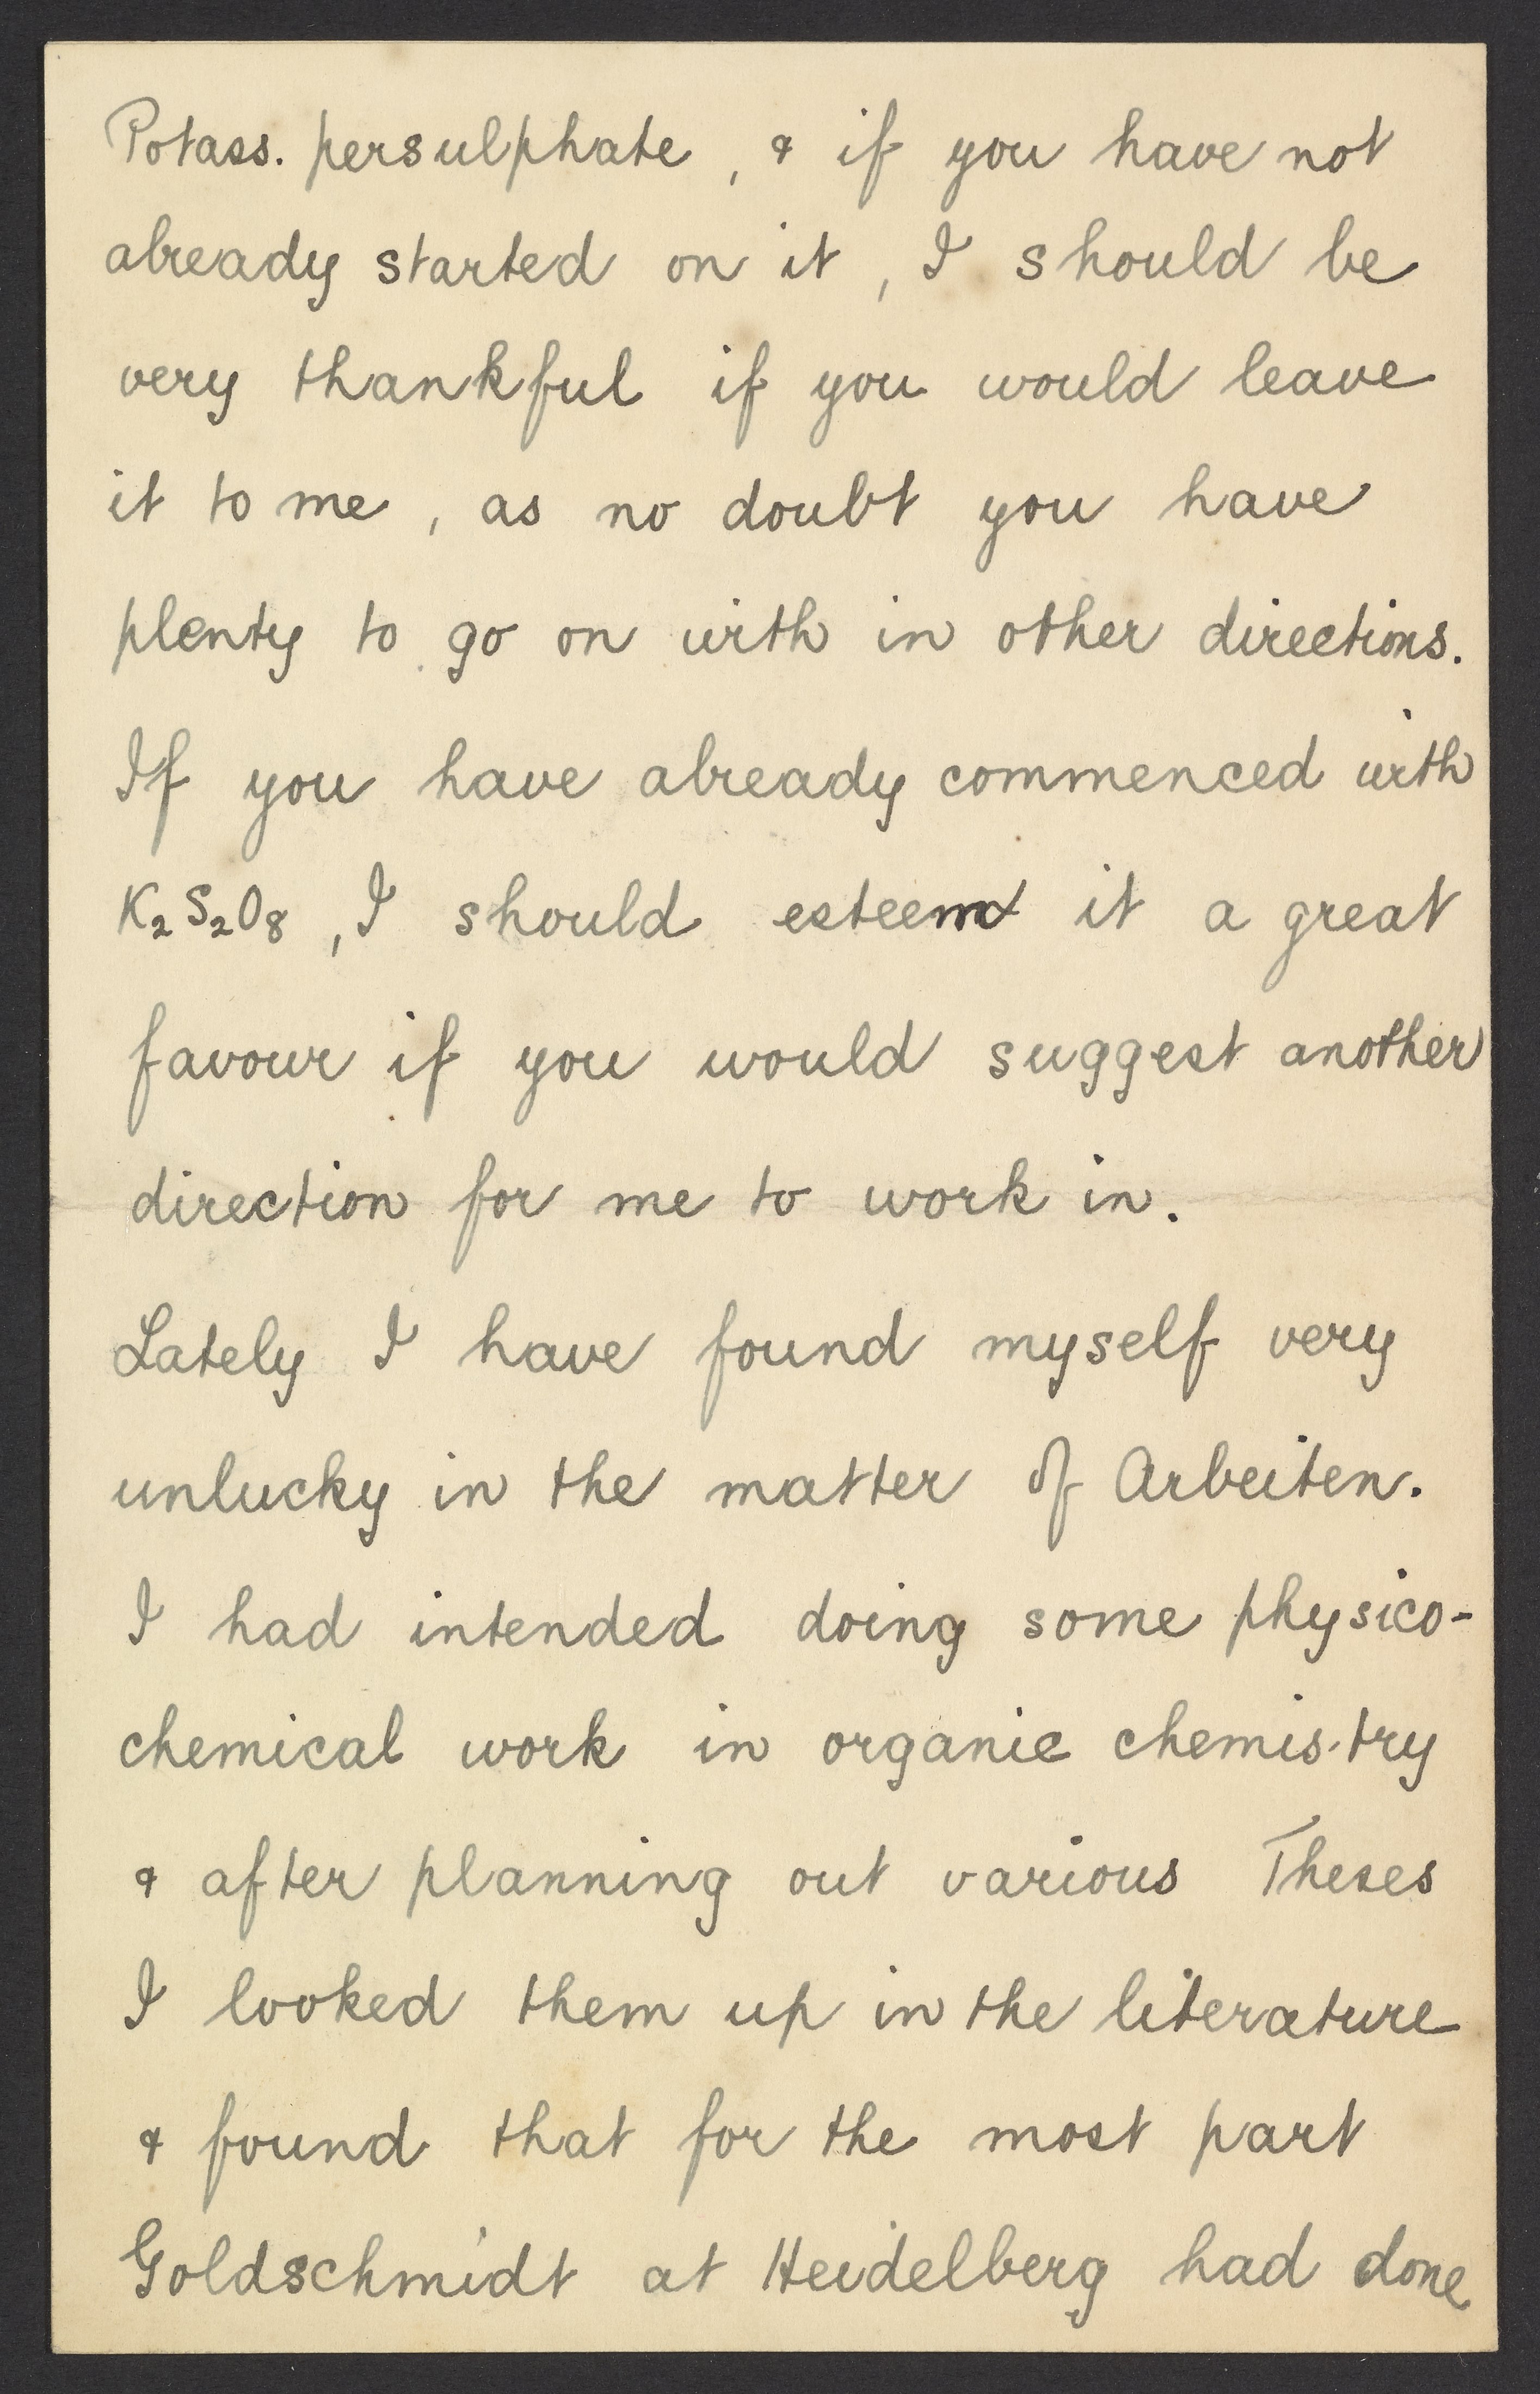 Potass. persulphate, & if you have not
already started on it, I should be
very thankful if you would leave
it to me, as no doubt you have
plenty to go on with in other directions.
If you have already commenced with
K₂S₂O₈, I should esteem it a great
favour if you would suggest another
direction for me to work in.
Lately I have found myself very
unlucky in the matter of Arbeiten.
I had intended doing some physico-
chemical work in organic chemistry
& after planning out various Theses
I looked them up in the literature
& found that for the most part
Goldschmidt at Heidelberg had done